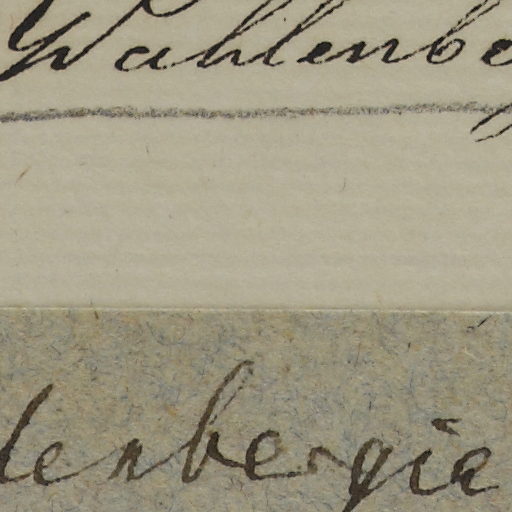 Wahlenbe
lenbergia